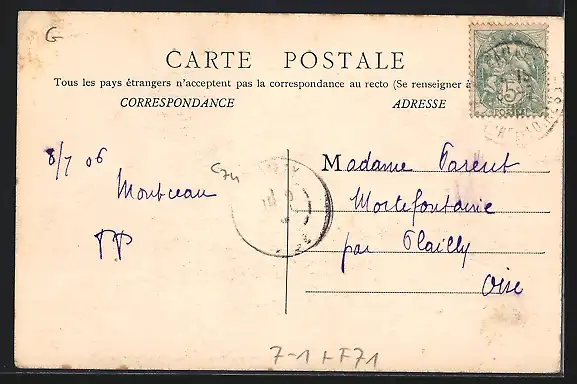 G
CARTE POSTALE
Tous les pays étrangers n'acceptent pas la correspondance au recto (Se renseigner à
CORRESPONDANCE
ADRESSE
8/7 06
Montceau
PP
C74
Madame Parent
Mortefontaine
par Plailly
Oise
7-1 + F71